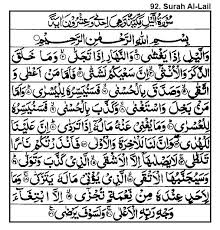 92. Surah Al-Lail
سُوْرَةُ الَّيْلِ مَكِّيَّةٌ وَّهِىَ اِحْدٰى وَّعِشْرُوْنَ اٰيَةً
بِسْمِ اللّٰهِ الرَّحْمٰنِ الرَّحِيْمِ
وَالَّيْلِ اِذَا يَغْشٰى ۙ وَالنَّهَارِ اِذَا تَجَلّٰى ۙ وَمَا خَلَقَ
الذَّكَرَ وَالْاُنْثٰٓى ۙ اِنَّ سَعْيَكُمْ لَشَتّٰى ؕ فَاَمَّا مَنْ اَعْطٰى
وَاتَّقٰى ۙ وَصَدَّقَ بِالْحُسْنٰى ۙ فَسَنُيَسِّرُهٗ لِلْيُسْرٰى ؕ وَاَمَّا
مَنْۢ بَخِلَ وَاسْتَغْنٰى ۙ وَكَذَّبَ بِالْحُسْنٰى ۙ فَسَنُيَسِّرُهٗ
لِلْعُسْرٰى ؕ وَمَا يُغْنِىْ عَنْهُ مَالُهٗٓ اِذَا تَرَدّٰى ؕ اِنَّ عَلَيْنَا
لَلْهُدٰى ۖ وَاِنَّ لَنَا لَلْاٰخِرَةَ وَالْاُوْلٰى ۚ فَاَنْذَرْتُكُمْ نَارًا
تَلَظّٰى ۚ لَا يَصْلٰىهَآ اِلَّا الْاَشْقَى ۙ الَّذِىْ كَذَّبَ وَتَوَلّٰى ؕ
وَسَيُجَنَّبُهَا الْاَتْقَى ۙ الَّذِىْ يُؤْتِىْ مَالَهٗ يَتَزَكّٰى ۚ وَمَا
لِاَحَدٍ عِنْدَهٗ مِنْ نِّعْمَةٍ تُجْزٰٓى ۙ اِلَّا ابْتِغَآءَ
وَجْهِ رَبِّهِ الْاَعْلٰى ۚ وَلَسَوْفَ يَرْضٰى